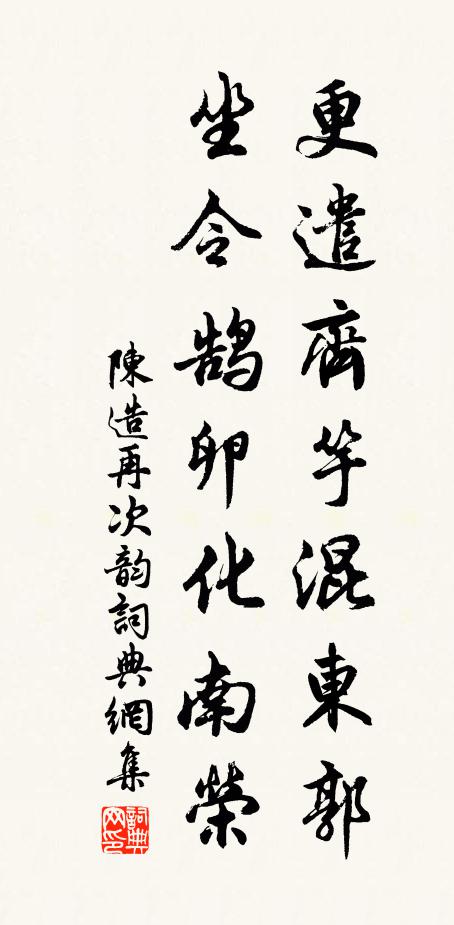 更遣齊竽混東郭
坐令鹄卵化南榮
陳造再次韵詞典網集
詞典网印